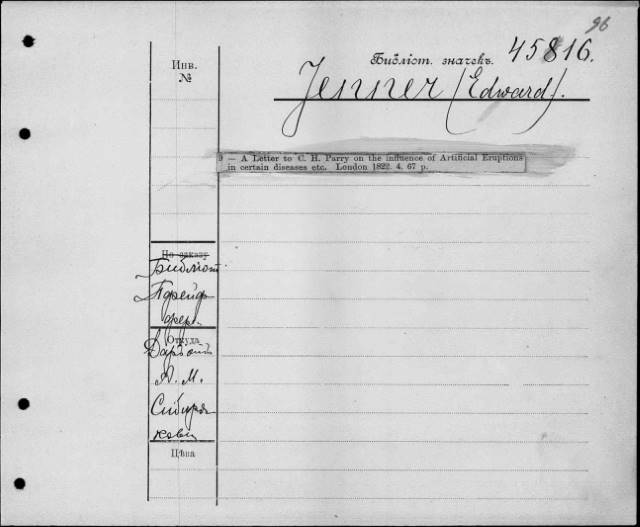 96
Инв.
№
Библіот. значекъ. 45816.
Jenner (Edward).
9 — A Letter to C. H. Parry on the influence of Artificial Eruptions
in certain diseases etc. London 1822. 4. 67 p.
По заказу
Библіот
Откуда
А. М.
Сибиря
кова
Цѣна